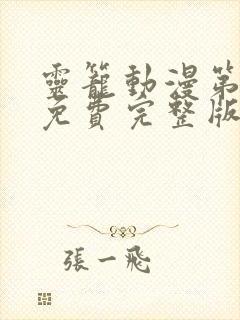 靈籠動漫第
免費完整版
張一飛